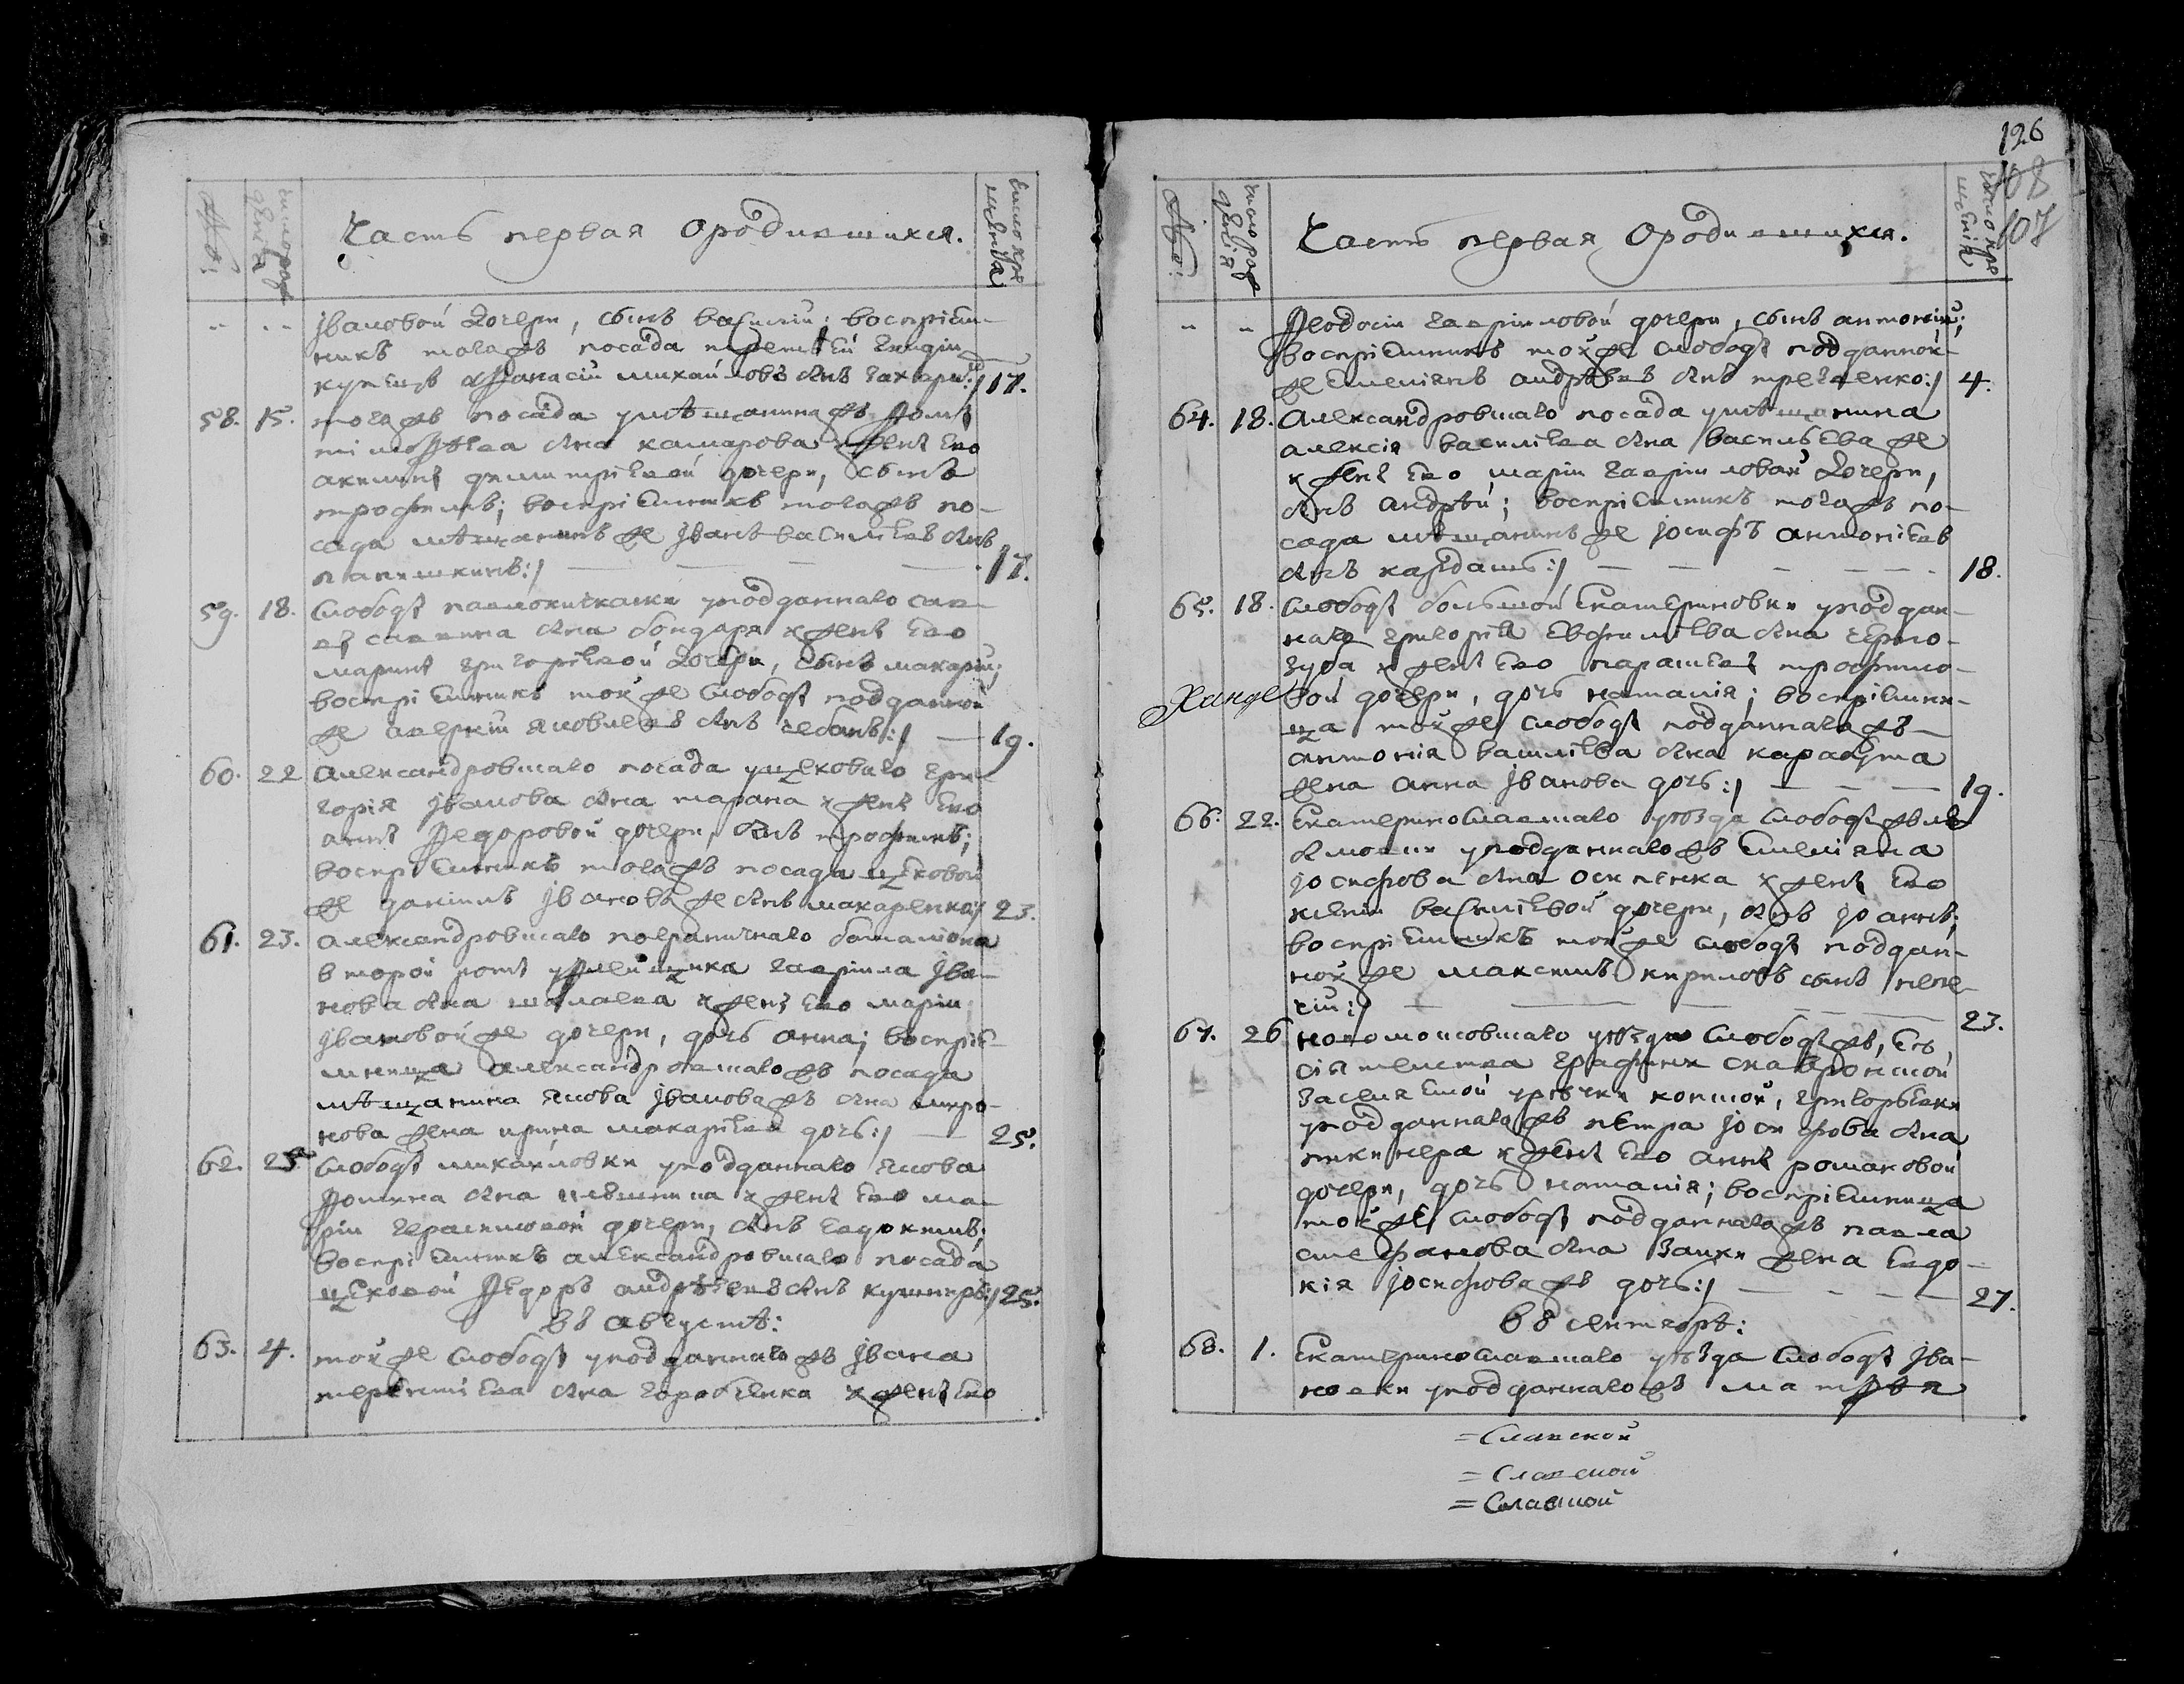 №:
число рождения
Часть первая ородившихся.
число крещения
Івановой дочери, сынъ василій; воспріем-
никъ тогожъ посада третьей гилдіи
купецъ афанасій михайловъ снъ захари:/ 17.
58. 15. тогожъ посада умѣщанинажъ
тимофѣева сна камарова ижены его
акилины димитріевой дочери, сынъ
трофимъ; воспріемникъ тогожъ по-
сада мѣщанинъ же Іванъ василіевъ снъ
папушкинъ:/ 17.
59. 18. слободы уподданнаго сав-
вы саввина сна бондаря ижены его
марины григоріевой дочери, сынъ макарій;
воспріемникъ тойже слободы подданной
же аверкій яковлевъ снъ чебанъ:/ 19.
60. 22 александровскаго посада уцеховаго гри-
горія Іванова сна тарана ижены его
анны федоровой дочери, снъ трофимъ;
воспріемникъ тогожъ посада цеховой
же даніилъ Івановъ же снъ макаренко:/ 23.
61. 23. александровскаго пограничнаго баталіона
второй роты уфлейщика гавріила Іва-
нова сна ижены его маріи
Івановой же дочери, дочь анна; воспріе-
мница александровскагожъ посада
мѣщанина якова Івановажъ сна миро-
нова жена ирина макаріева дочь:/ 25.
62. 25 слободы михайловки уподданнаго якова
фомина сна ижены его ма-
ріи герасимовой дочери, снъ евдокимъ;
воспріемникъ александровскаго посада
цеховой федоръ андрѣевъ снъ кушниръ:/ 25.
въ августѣ:
63. 4. тойже слободы уподданнагожъ Івана
терентіева сна горобченка ижены его
126
108
107
№:
число рождения
Часть первая ородившихся.
число крещения
феодосіи гавріиловой дочери, сынъ антоній;
воспріемникъ тойже слободы подданной-
же емеліянъ андрѣевъ снъ третяченко:/ 4.
64. 18. Александровскаго посада умѣщанина
алексія василіева сна васильева же
ижены его маріи гавріиловой дочери,
снъ андрѣй; воспріемникъ тогожъ по-
сада мѣщанинъ же Іосифъ антоніевъ
снъ кардашъ:/ 18.
65. 18. слободы большой Екатериновки уподдан-
наго григорія евфиміева сна черно-
зуба ижены его параскевы трофимо-
вой дочери, дочь наталія; воспріемни-
ца тойже слободы подданнагожъ
антонія василіева сна карабута
жена анна Іванова дочь:/ 19.
66. 22. Екатеринославскаго уѣзда слободыжъ
уподданнагожъ емеліяна
Іосифова сна осипенка ижены его
ксеніи василіевой дочери, снъ Іоаннъ;
воспріемникъ тойже слободы поддан-
ной же максимъ кириловъ сынъ пече-
гій:/ 23.
67. 26 новомосковскаго уѣзда слободыжъ, Ея
сіятельства графини скавронской
заселяемой урѣчки конской, григорьевки
уподданнагожъ петра Іосифова сна
пикинера ижены его анны романовой
дочери, дочь наталія; воспріемница
тойже слободы подданнагожъ павла
стефанова сна заики жена евдо-
кія Іосифоважъ дочь:/ 27.
въ сентябрѣ:
68. 1. Екатеринославскаго уѣзда слободы Іва-
новки уподданнагожъ матфѣя
=Славской
=Славской
=Славской